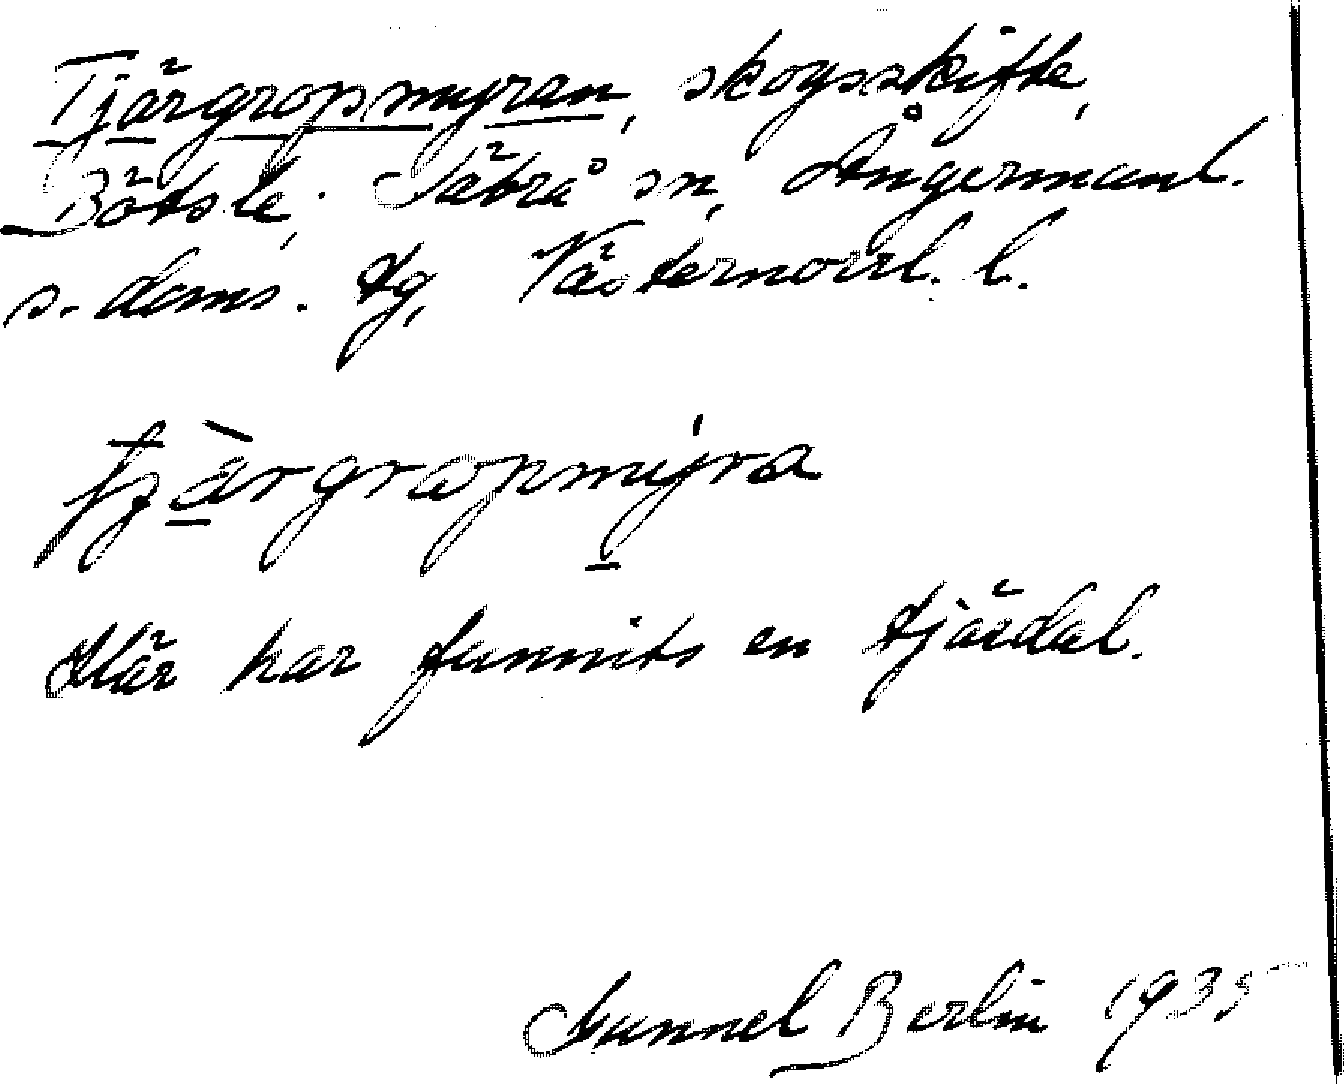 Tjärgropmyren, skogsskifte,
Bölsle, Säbrå sn, Ångermanl.
s. doms. tg, Västernorrl. l.
tjàrgropmýra
Här har funnits en tjärdal.
Gunnel Berlin 1935